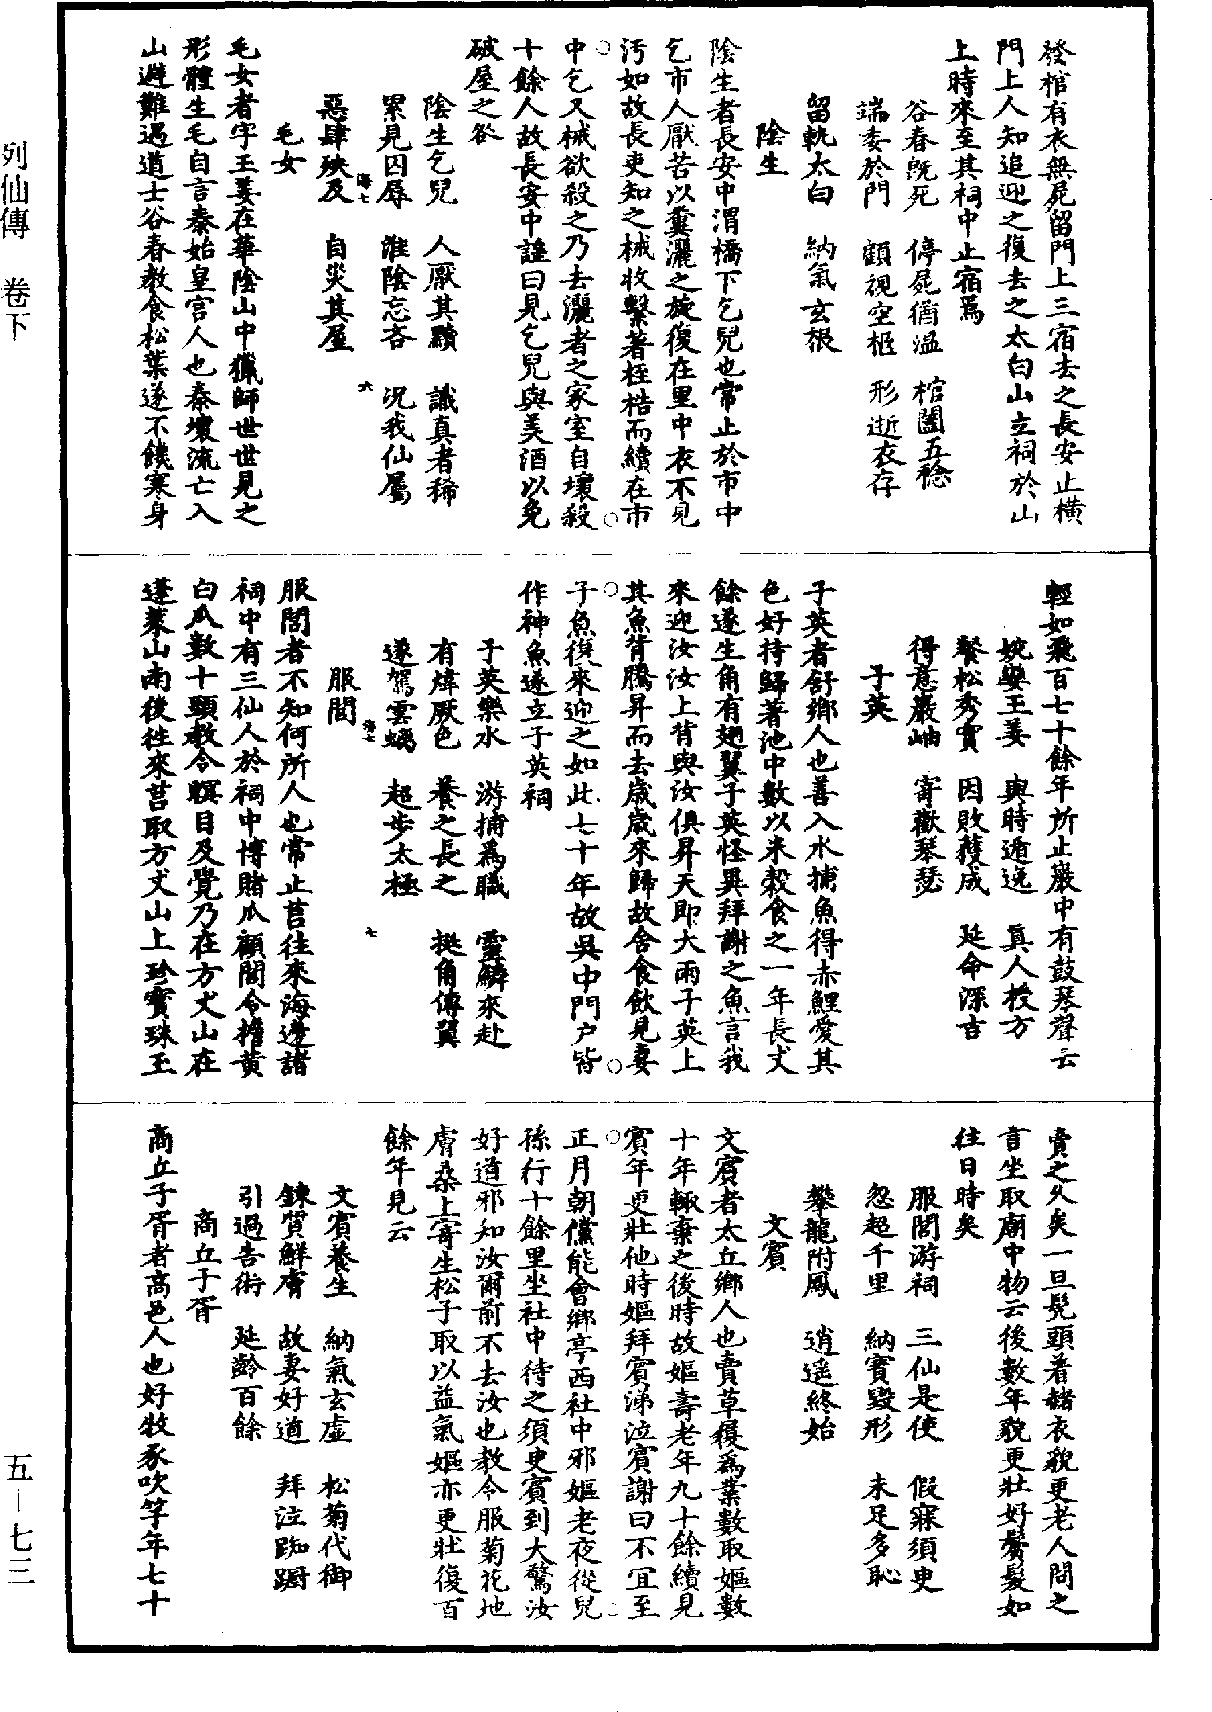 列仙傳　卷下
發棺有衣無屍留門上三宿去之長安止橫
門上人知追迎之復去之太白山立祠於山
上時來至其祠中止宿焉
谷春既死　停屍猶溫　棺闔五稔
端委於門　顧視空柩　形逝衣存
留軌太白　納氣玄根
陰生
陰生者長安中渭橋下乞兒也常止於市中
乞市人厭苦以糞灑之旋復在里中衣不見
汚如故長吏知之械收繫著桎梏而續在市
中乞又械欲殺之乃去灑者之家室自壞殺
十餘人故長安中謠曰見乞兒與美酒以免
破屋之咎
陰生乞兒　人厭其黷　識真者稀
累見囚辱　淮陰忘吝　況我仙屬
惡肆殃及　自災其屋
海七　六
毛女
毛女者字玉姜在華陰山中獵師世世見之
形體生毛自言秦始皇宮人也秦壞流亡入
山避難遇道士谷春教食松葉遂不饑寒身
輕如飛百七十餘年所止巖中有鼓琴聲云
婉孌玉姜　與時遁逸　真人授方
餐松秀實　因敗獲成　延命深吉
得意巖岫　寄歡琴瑟
子英
子英者舒鄉人也善入水捕魚得赤鯉愛其
色好持歸著池中數以米穀食之一年長丈
餘遂生角有翅翼子英怪異拜謝之魚言我
來迎汝汝上背與汝俱昇天即大雨子英上
其魚背騰昇而去歲歲來歸故舍食飲見妻
子魚復來迎之如此七十年故吳中門戶皆
作神魚遂立子英祠
子英樂水　游捕為職　靈鱗來赴
有煒厥色　養之長之　挺角傅翼
遂駕雲螭　超步太極
海七　七
服閭
服閭者不知何所人也常止莒往來海邊諸
祠中有三仙人於祠中博賭瓜顧閭令擔黃
白瓜數十頭教令瞑目及覺乃在方丈山在
蓬萊山南後往來莒取方丈山上珍寶珠玉
賣之久矣一旦髡頭著赭衣貌更老人問之
言坐取廟中物云後數年貌更壯好鬢髮如
往日時矣
服閭游祠　三仙是使　假寐須臾
忽超千里　納寶毀形　未足多恥
攀龍附鳳　逍遙終始
文賓
文賓者太丘鄉人也賣草履為業數取嫗數
十年輒棄之後時故嫗壽老年九十餘續見
賓年更壯他時嫗拜賓涕泣賓謝曰不宜至
正月朝儻能會鄉亭西社中邪嫗老夜從兒
孫行十餘里坐社中待之須臾賓到大驚汝
好道邪知汝爾前不去汝也教令服菊花地
膚桑上寄生松子取以益氣嫗亦更壯復百
餘年見云
文賓養生　納氣玄虛　松菊代御
鍊質鮮膚　故妻好道　拜泣踟躕
引過告術　延齡百餘
商丘子胥
商丘子胥者高邑人也好牧豕吹竽年七十
五—七三